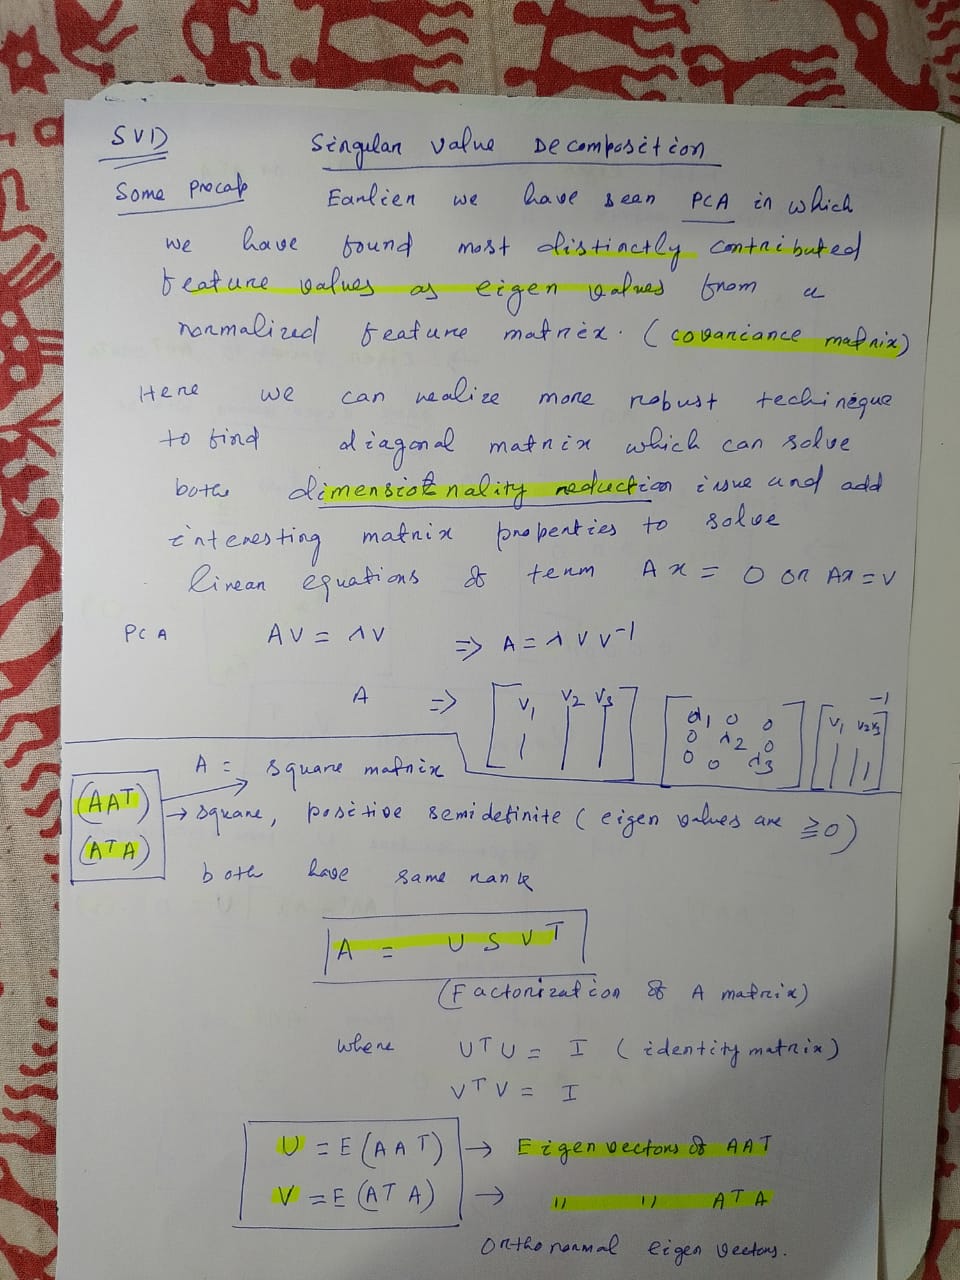 SVD Singular value Decomposition
Some Precap Earlier we have seen PCA in which
we have found most distinctly contributed
feature values as eigen values from a
normalized feature matrix. (covariance matrix)
Here we can realize more robust techinique
to find diagonal matrix which can solve
both dimensionality reduction issue and add
interesting matrix properties to solve
linear equations of term Ax = 0 or Ax = v
PCA AV = λV => A = λ V V⁻¹
A => [V₁ V₂ V₃] [λ₁ 0 0
0 λ₂ 0
0 0 λ₃] [V₁ V₂ V₃]⁻¹
A = square matrix
(AAᵀ) → square, positive semidefinite (eigen values are ≥0)
(AᵀA)
both have same rank
A = U S Vᵀ
(Factorization of A matrix)
where UᵀU = I (identity matrix)
VᵀV = I
U = E(AAᵀ) → Eigen vectors of AAᵀ
V = E(AᵀA) → " " AᵀA
Orthonormal eigen vectors.